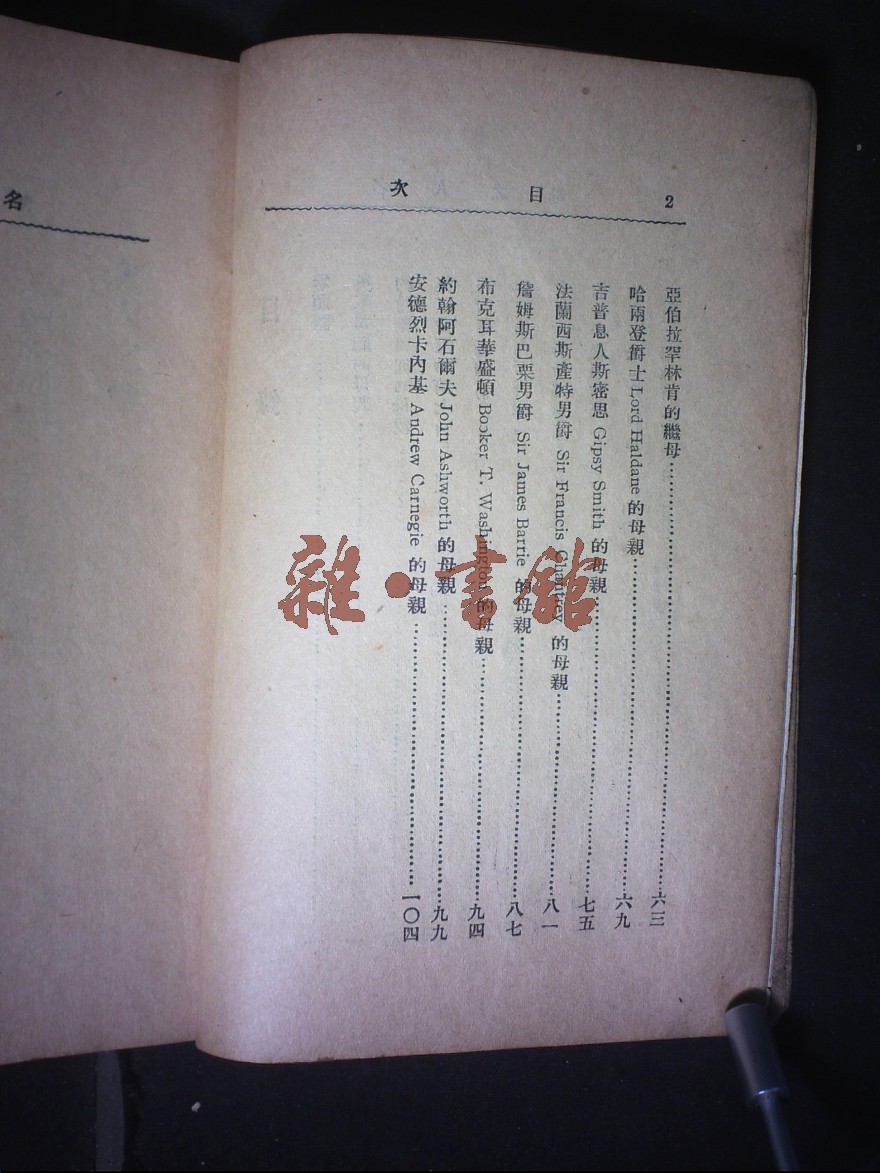 2 目次
亞伯拉罕林肯的繼母……六三
哈兩登爵士 Lord Haldane 的母親……六九
吉普息人斯密思 Gipsy Smith 的母親……七五
法蘭西斯產特男爵 Sir Francis Chantrey 的母親……八一
詹姆斯巴栗男爵 Sir James Barrie 的母親……八七
布克耳華盛頓 Booker T. Washington 的母親……九四
約翰阿石爾夫 John Ashworth 的母親……九九
安德烈卡內基 Andrew Carnegie 的母親……一〇四
名
雜·書館